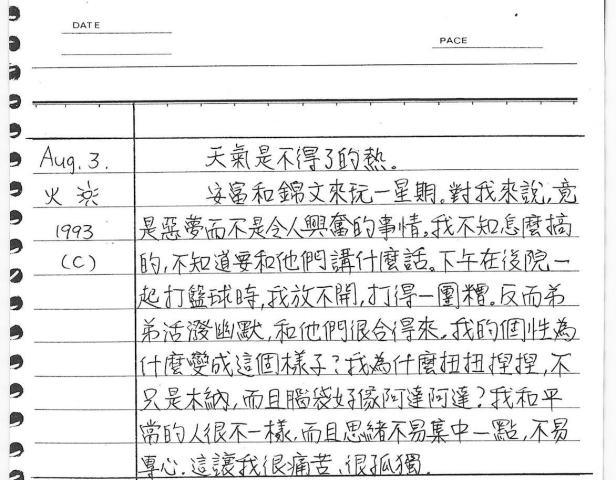 DATE
PACE
Aug. 3. 天氣是不得了的熱。
火 安富和錦文來玩一星期。對我來說,竟
1993 是惡夢而不是令人興奮的事情。我不知怎麼搞
(C) 的,不知道要和他們講什麼話。下午在後院一
起打籃球時,我放不開,打得一團糟。反而弟
弟活潑幽默,和他們很合得來。我的個性為
什麼變成這個樣子?我為什麼扭扭捏捏,不
只是木納,而且腦袋好像阿達阿達?我和平
常的人很不一樣,而且思緒不易集中一點,不易
專心。這讓我很痛苦、很孤獨.